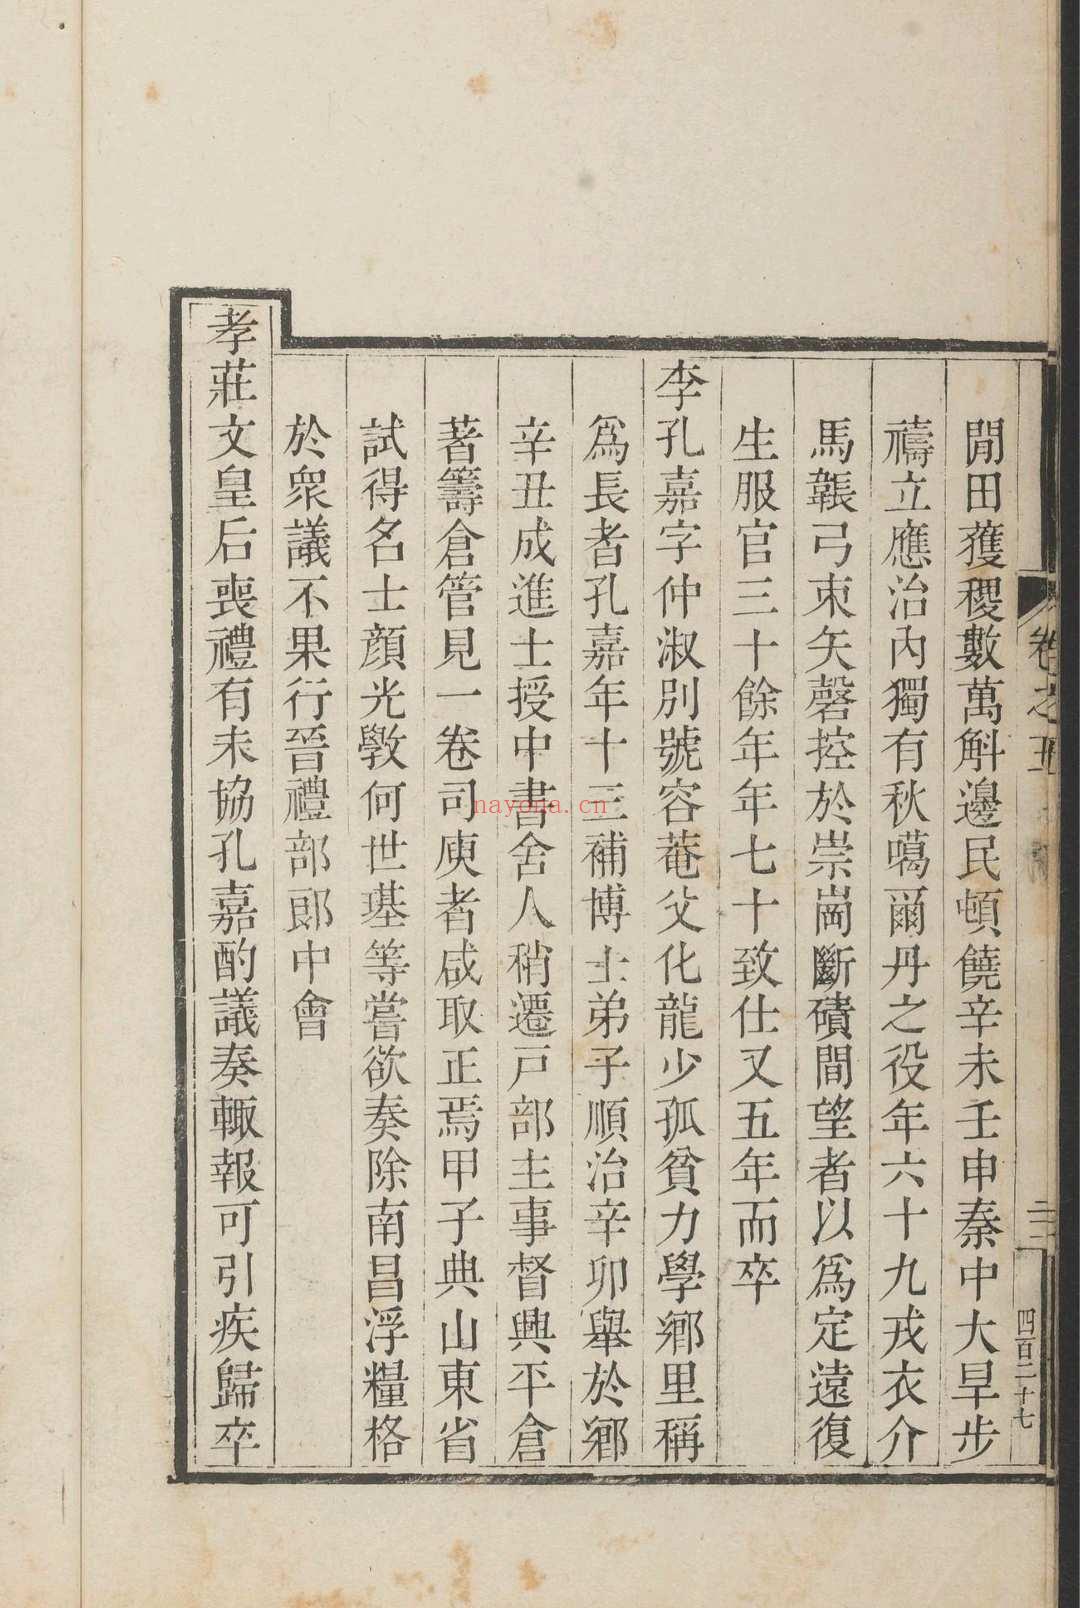 卷之五
四百二十七
閒田獲稷數萬斛邊民頓饒辛未壬申秦中大旱步
禱立應治內獨有秋噶爾丹之役年六十九戎衣介
馬韔弓束矢磬控於崇崗斷磧間望者以爲定遠復
生服官三十餘年年七十致仕又五年而卒
李孔嘉字仲淑別號容菴父化龍少孤貧力學鄉里稱
爲長者孔嘉年十三補博士弟子順治辛卯舉於鄉
辛丑成進士授中書舍人稍遷戸部主事督興平倉
著籌倉管見一卷司庾者咸取正焉甲子典山東省
試得名士顔光斆何世璂等嘗欲奏除南昌浮糧格
於衆議不果行晉禮部郎中會
孝莊文皇后喪禮有未協孔嘉酌議奏輙報可引疾歸卒
nayona.cn